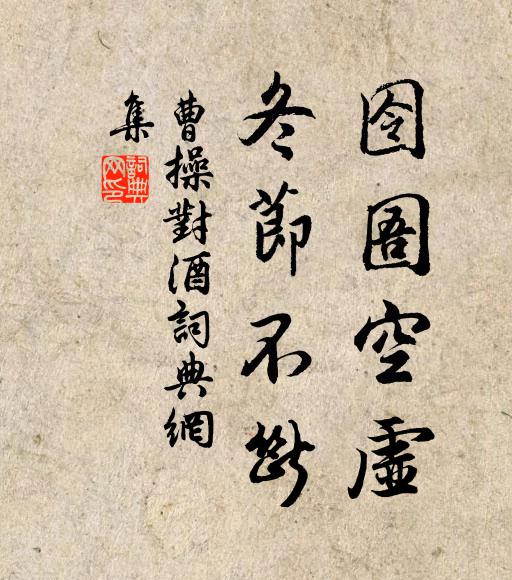 囹圄空虛
冬節不斷
曹操對酒詞典網
集
詞典
网印